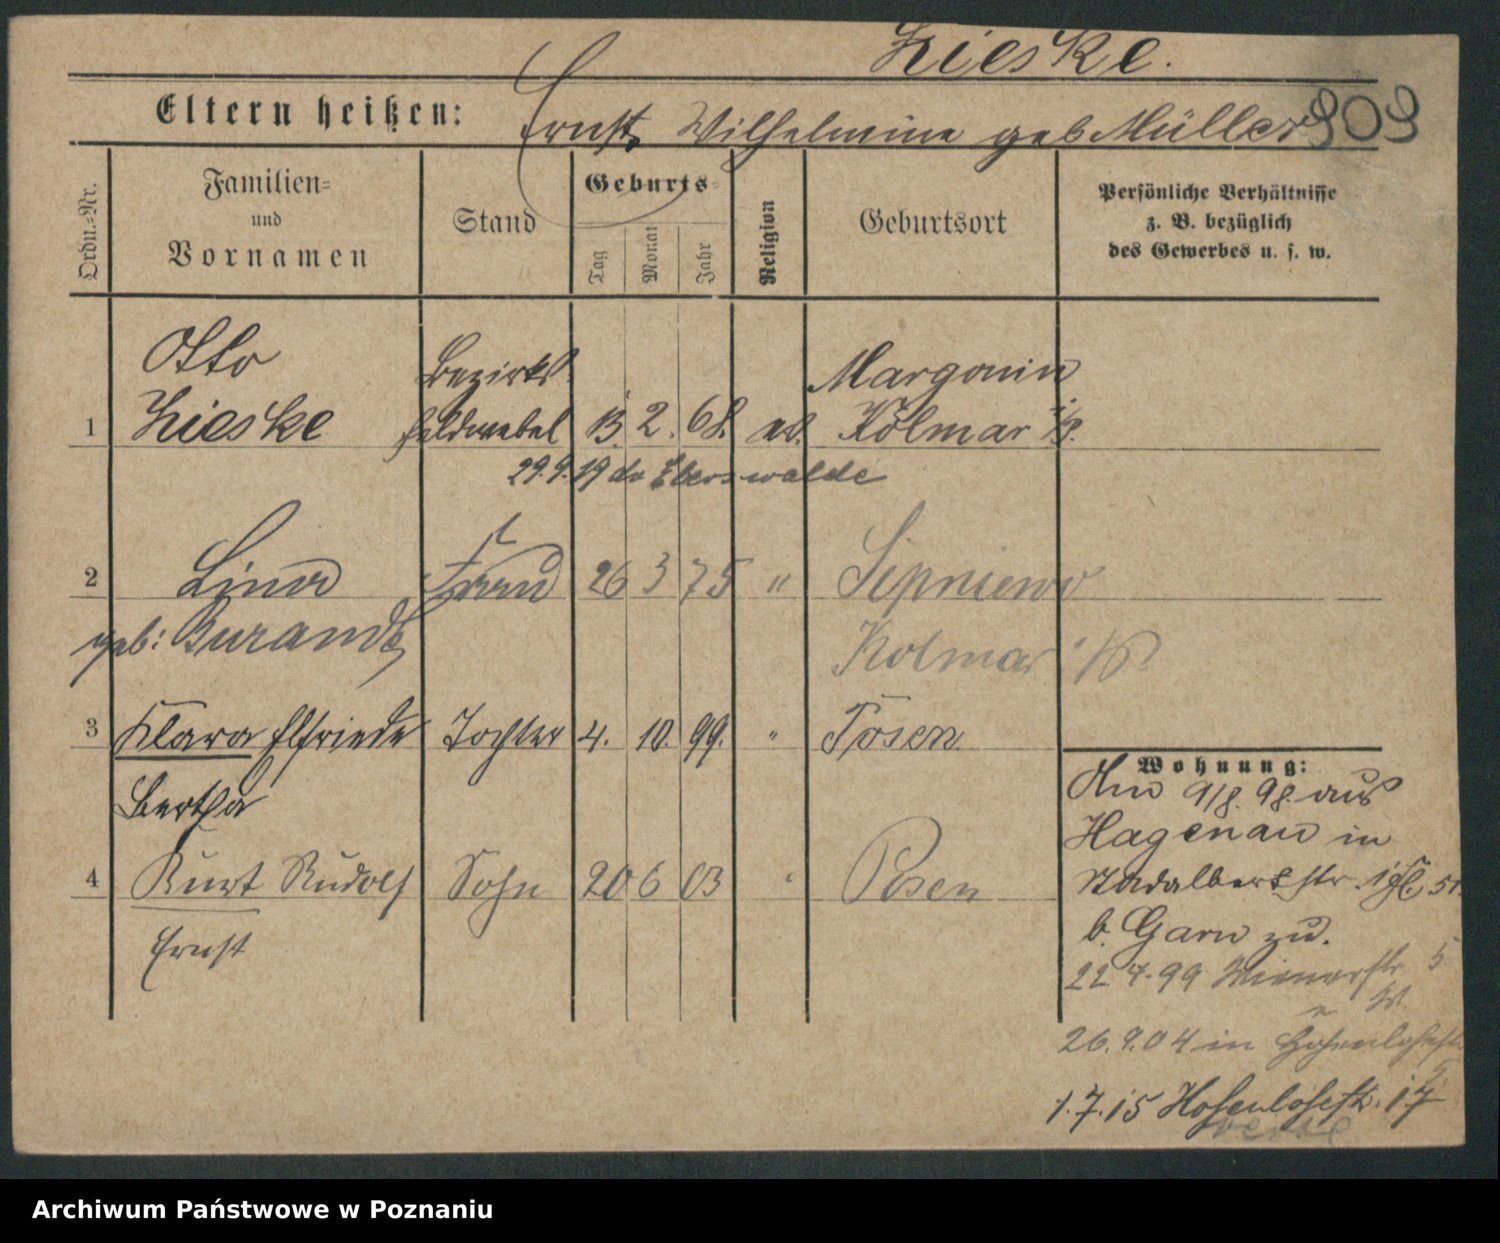 Zieske.
Eltern heißen: Ernst, Wilhelmine geb Müller 909
Ordn.=Nr.
Familien=
und
Vornamen
Stand
Geburts=
Tag
Monat
Jahr
Religion
Geburtsort
Persönliche Verhältnisse
z. B. bezüglich
des Gewerbes u. s. w.
Otto Bezirks Margonin
1 Zieske feldwebel 13. 2. 68. ev. Kolmar i/P.
29.9.19 do Eberswalde
2 Lina Frau 26 3 75 " Lipniewo
geb: Burandt Kolmar i/P
3 Klara Elfriede Tochter 4. 10. 99. " Posen
Bertha
4 Kurt Rudolf Sohn 20 6 03 " Posen
Ernst
Wohnung:
Am 9/8. 98. aus
Hagenau in
Nadalbertstr. 51.
b. Garn zu.
22.4.99 Wienerstr 5
26.9.04 in Hohenlohestr
1.7.15 Hohenlohestr. 17